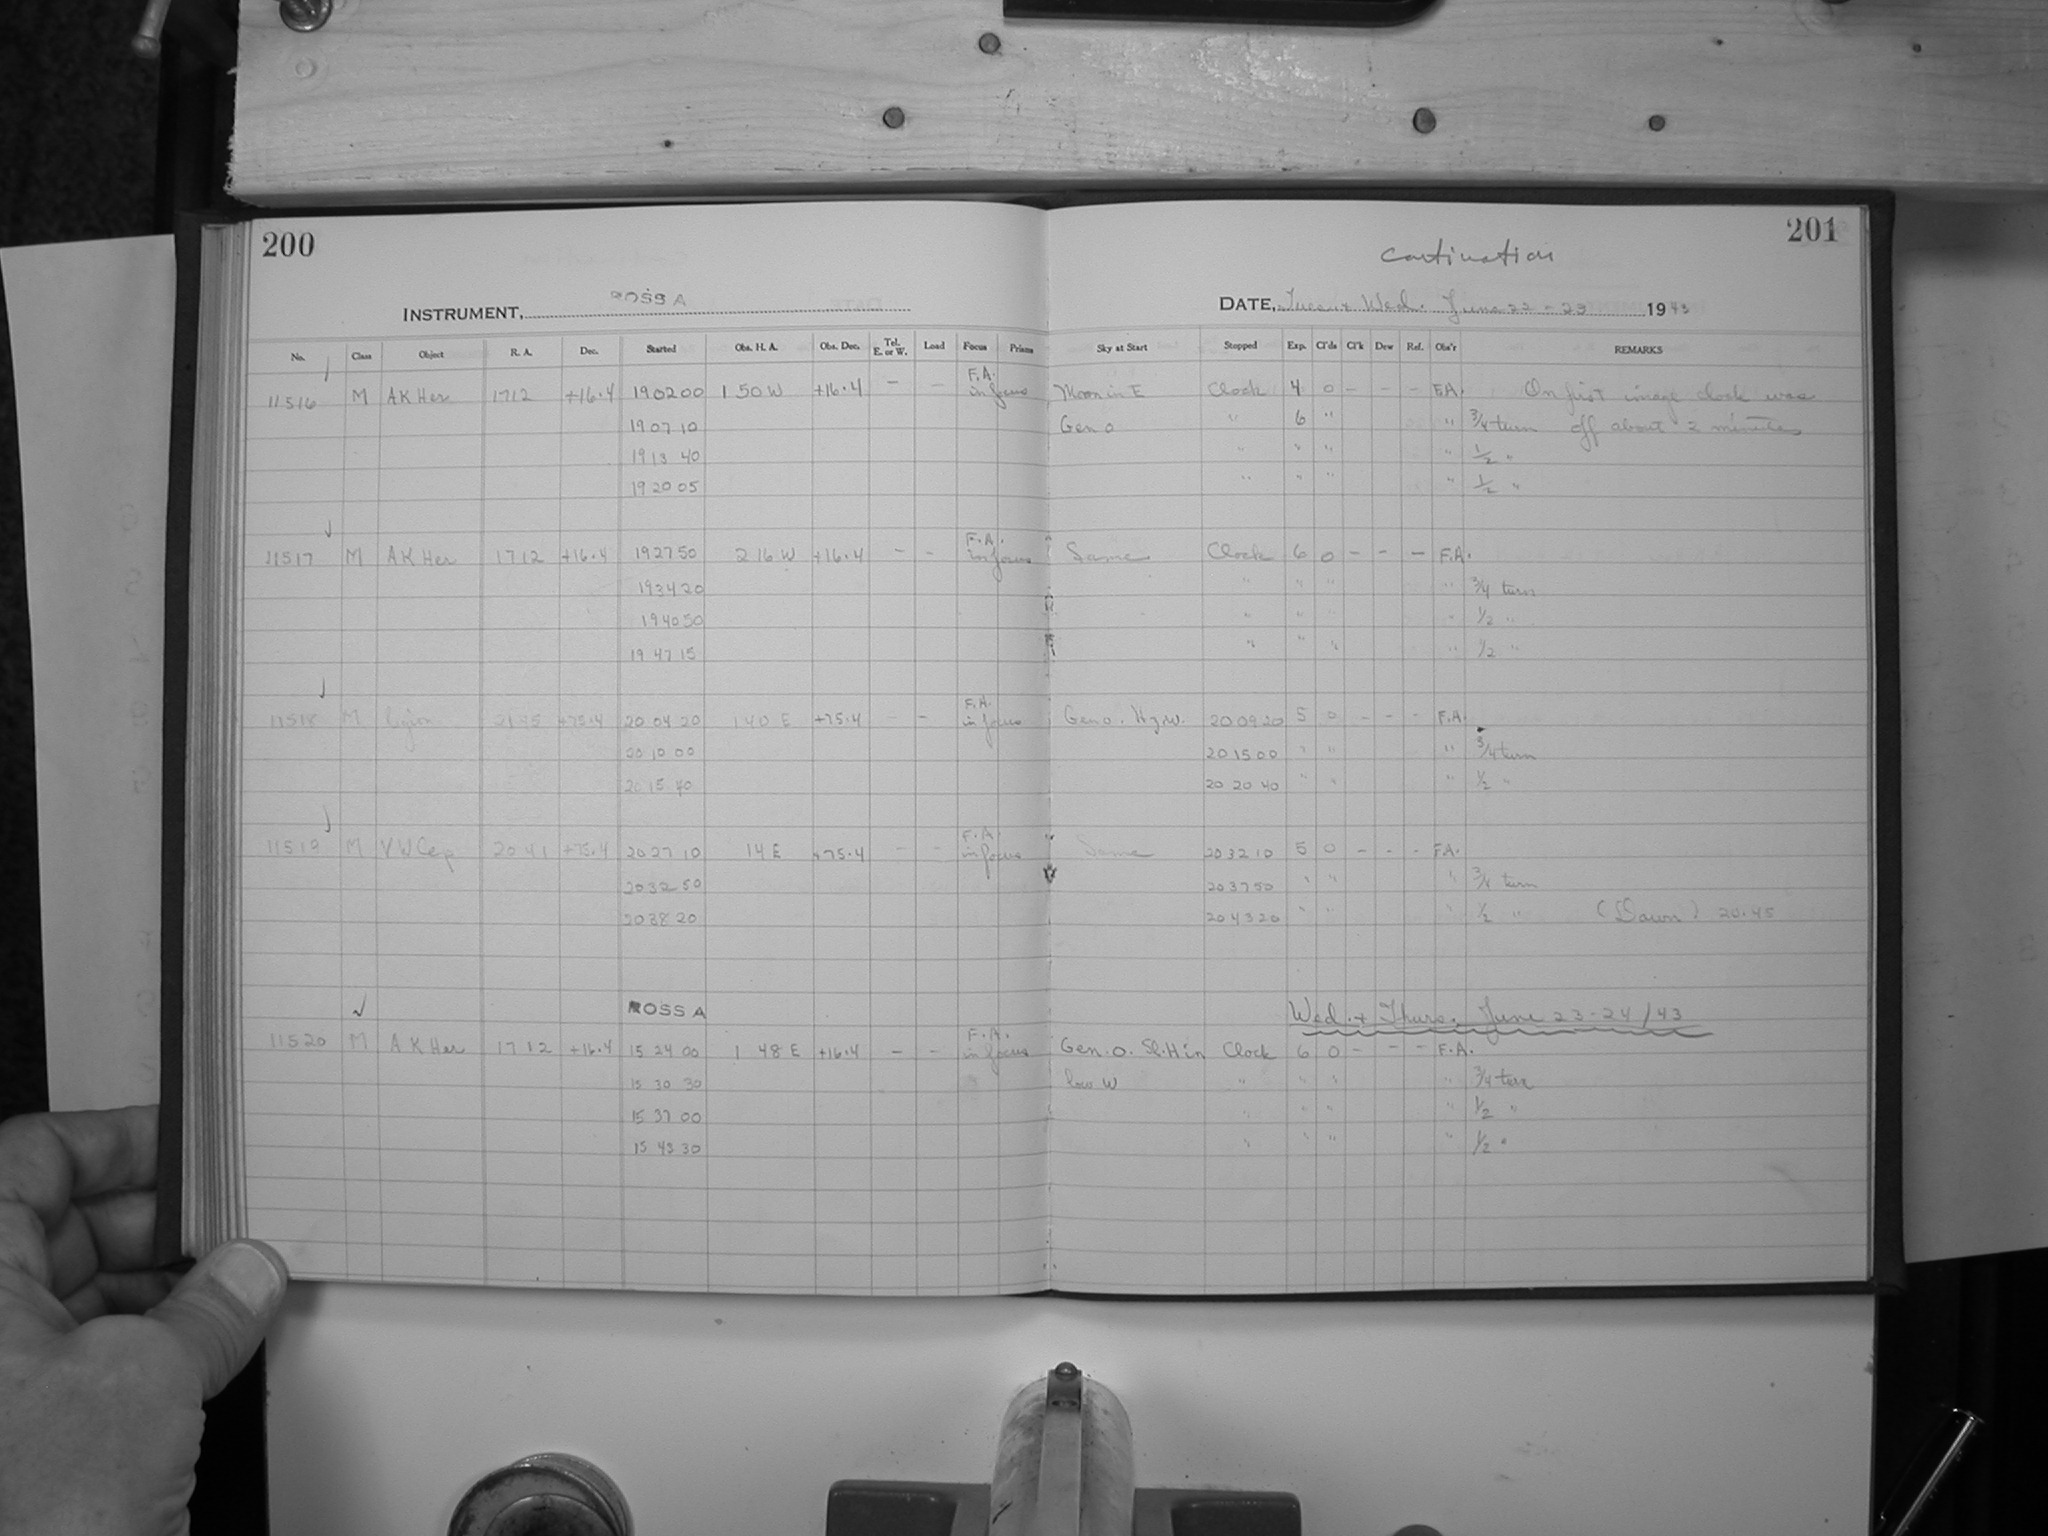 200
201
continuation
INSTRUMENT, ROSS A
DATE, Tues + Wed. June 22 - 23 1943
No. Class Object R. A. Dec. Started Obs. H. A. Obs. Dec. Tel. E. or W. Load Focus Prisms Sky at Start Stopped Exp. Cl'ds Cl'k Dew Ref. Obs'r REMARKS
11516 M AK Her 1712 +16.4 19 02 00 1 50 W +16.4 - - F.A. in focus Moon in E Clock 4 0 - - - F.A. On first image clock was
19 07 10 Gen 0 " 6 " " 3/4 turn off about 2 minutes
19 13 40 " " " " 1/2 "
19 20 05 " " " " 1/2 "
11517 M AK Her 1712 +16.4 19 27 50 2 16 W +16.4 - - F.A. in focus Same Clock 6 0 - - - F.A.
19 34 20 " " " " 3/4 turn
19 40 50 " " " " 1/2 "
19 47 15 " " " " 1/2 "
11518 M 2145 +75.4 20 04 20 1 40 E +75.4 - - F.A. in focus Gen 0. Hzw. 20 09 20 5 0 - - - F.A.
20 10 00 20 15 00 " " " 3/4 turn
20 15 40 20 20 40 " " " 1/2 "
11519 M VW Cep 2041 +75.4 20 27 10 14 E +75.4 - - F.A. in focus Same 20 32 10 5 0 - - - F.A.
20 32 50 20 37 50 " " " 3/4 turn
20 38 20 20 43 20 " " " 1/2 " (Dawn) 20.45
ROSS A Wed. + Thurs. June 23-24/43
11520 M AK Her 1712 +16.4 15 24 00 1 48 E +16.4 - - F.A. in focus Gen. 0. Sl. H in Clock 6 0 - - - F.A.
15 30 30 low W " " " " 3/4 turn
15 37 00 " " " " 1/2 "
15 43 30 " " " " 1/2 "